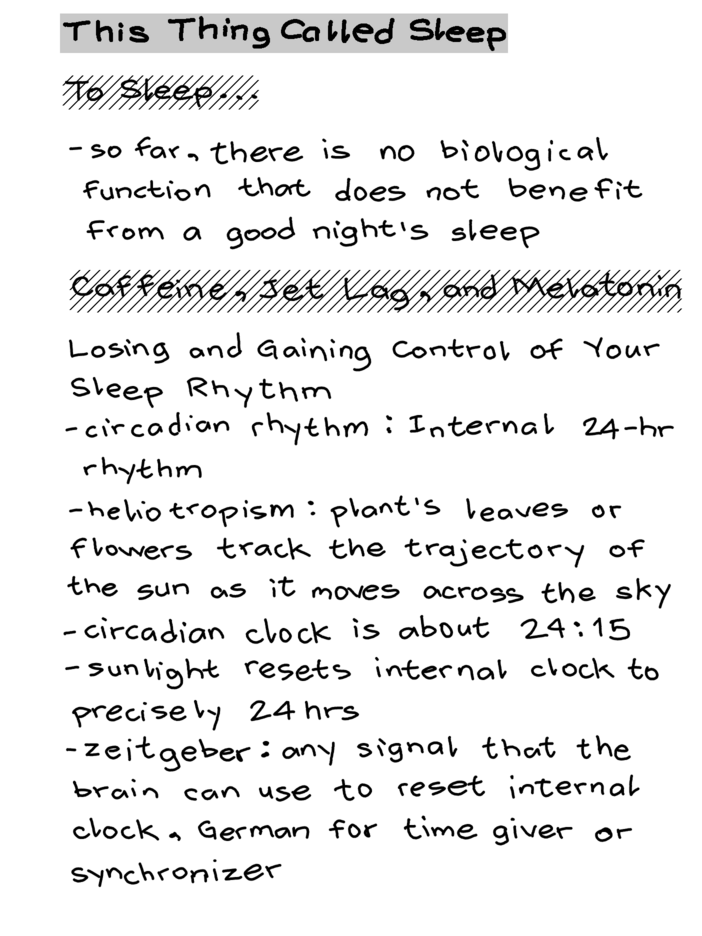 This Thing Called Sleep
To Sleep...
- so far, there is no biological
function that does not benefit
from a good night's sleep
Caffeine, Jet Lag, and Melatonin
Losing and Gaining Control of Your
Sleep Rhythm
- circadian rhythm : Internal 24-hr
rhythm
- heliotropism : plant's leaves or
flowers track the trajectory of
the sun as it moves across the sky
- circadian clock is about 24:15
- sunlight resets internal clock to
precisely 24 hrs
- zeitgeber : any signal that the
brain can use to reset internal
clock, German for time giver or
synchronizer